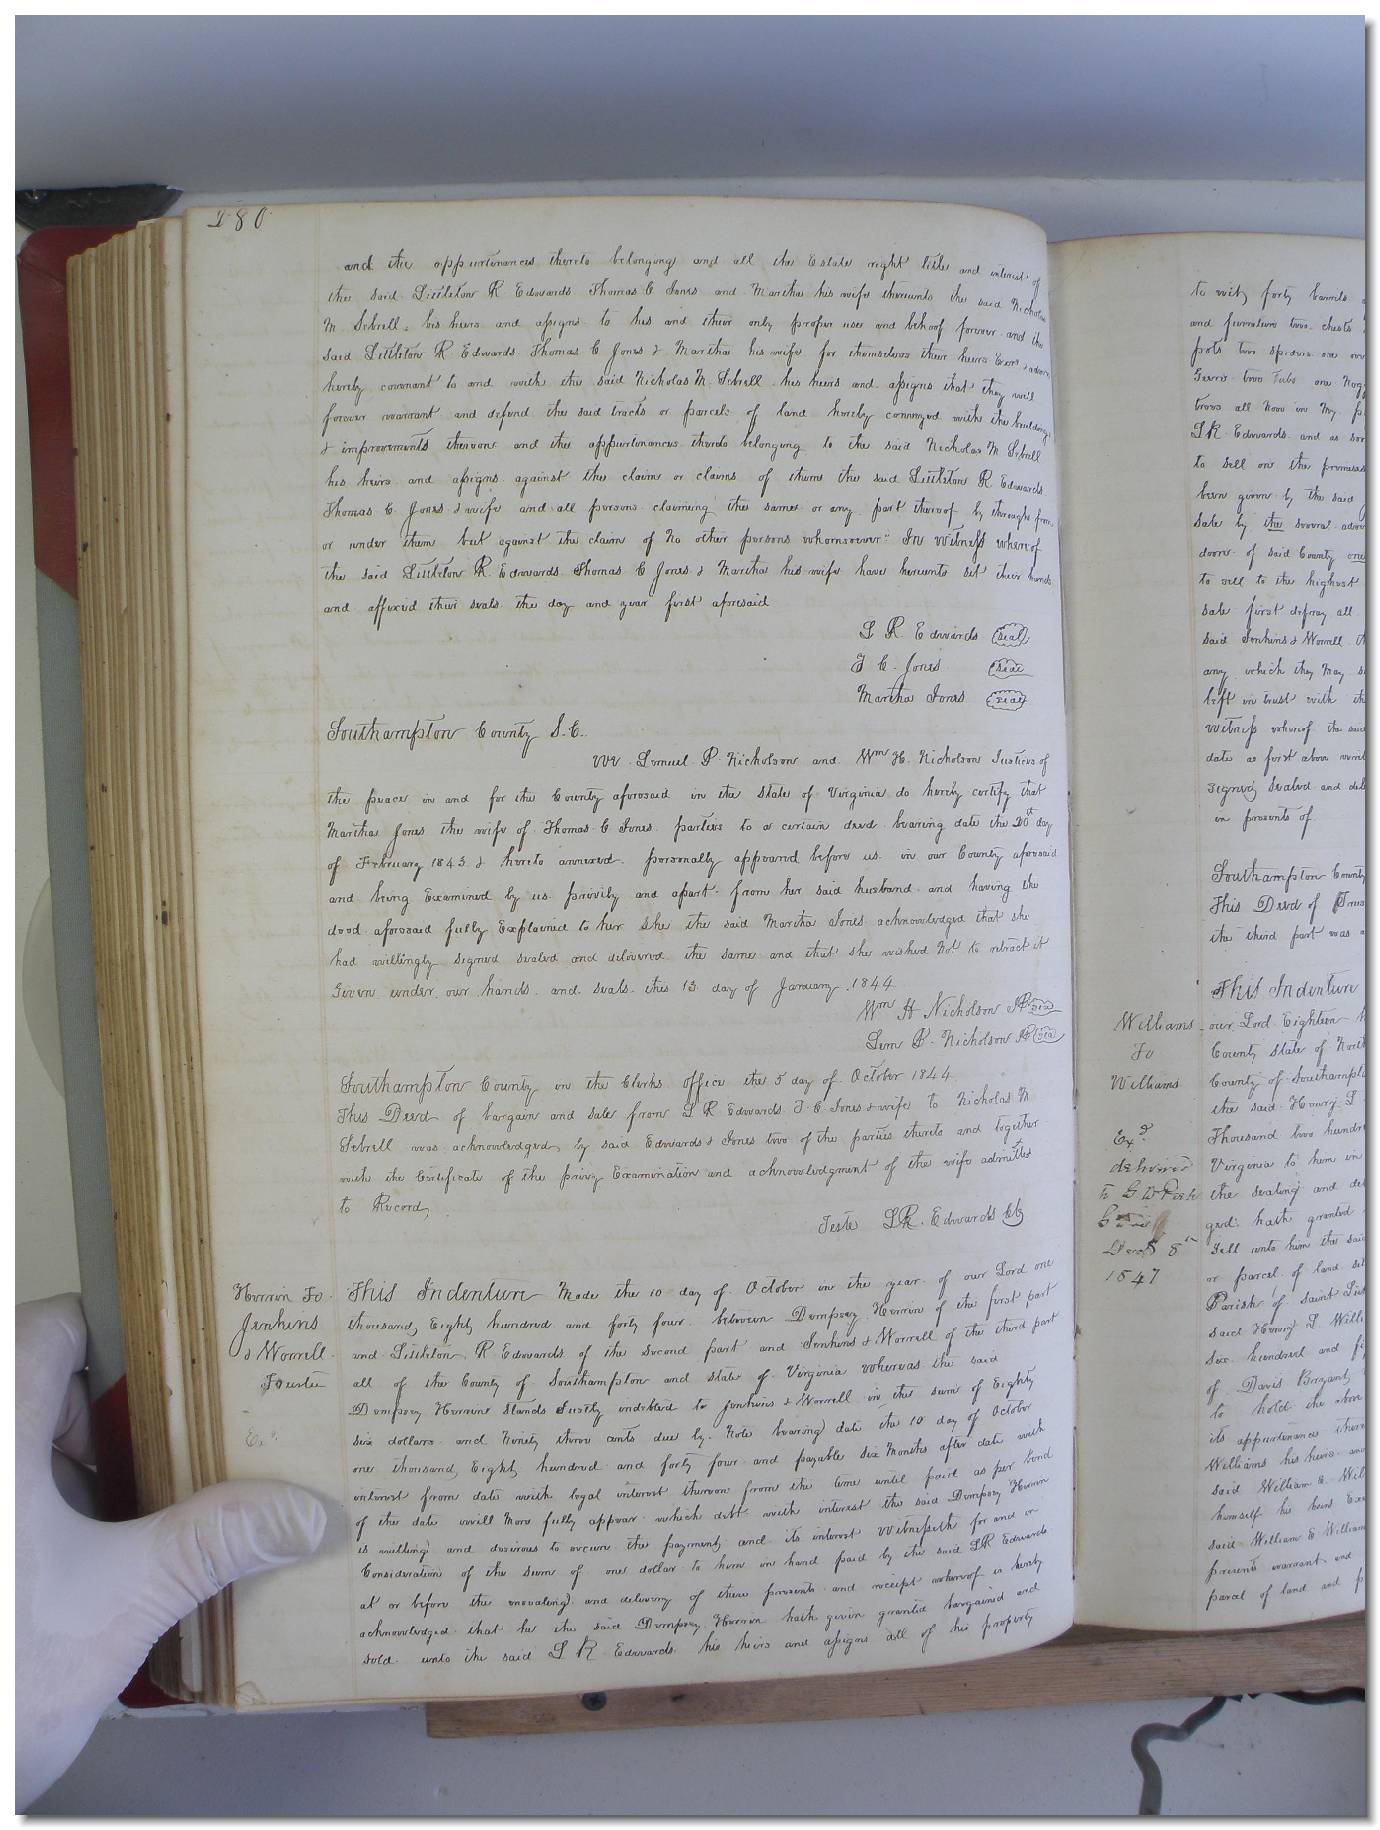 280
and the appurtenances thereto belonging and all the Estate right title and interest of
the said Littleton R Edwards Thomas C Jones and Martha his wife thereunto the said Nicholas
M. Sebrell, his heirs and assigns to his and their only proper use and behoof forever and the
said Littleton R Edwards Thomas C Jones & Martha his wife for themselves their heirs Exrs & admrs
hereby covenant to and with the said Nicholas M. Sebrell his heirs and assigns that they will
forever warrant and defend the said tracts or parcels of land hereby conveyed with the buildings
& improvements thereon and the appurtenances thereto belonging to the said Nicholas M Sebrell
his heirs and assigns against the claim or claims of them the said Littleton R Edwards
Thomas C Jones & wife and all persons claiming the same or any part thereof by through from
or under them but against the claim of no other persons whomsoever In Witness whereof
the said Littleton R. Edwards Thomas C Jones & Martha his wife have hereunto set their hands
and affixed their seals the day and year first aforesaid
L R Edwards seal
T C Jones seal
Martha Jones seal
Southampton County S.C.
We Lemuel P Nicholson and Wm H. Nicholson Justices of
the peace in and for the County aforesaid in the State of Virginia do hereby certify that
Martha Jones the wife of Thomas C Jones parties to a certain deed bearing date the 20th day
of February 1843 & hereto annexed personally appeared before us in our County aforesaid
and being Examined by us privily and apart from her said husband and having the
deed aforesaid fully Explained to her she the said Martha Jones acknowledged that she
had willingly signed sealed and delivered the same and that she wished not to retract it
Given under our hands and seals this 13 day of January 1844
Wm H Nicholson JP seal
Lem P. Nicholson JP seal
Southampton County in the Clerks office the 5 day of October 1844
This Deed of bargain and sale from L R Edwards T C Jones & wife to Nicholas M
Sebrell was acknowledged by said Edwards & Jones two of the parties thereto and together
with the Certificate of the privy Examination and acknowledgment of the wife admitted
to Record,
Teste L R. Edwards CC
Herrin To
Jenkins
& Worrell
Trustee
Exd.
This Indenture Made the 10 day of October in the year of our Lord one
thousand Eight hundred and forty four between Dempsey Herrin of the first part
and Littleton R Edwards of the second part and Jenkins & Worrell of the third part
all of the County of Southampton and state of Virginia whereas the said
Dempsey Herrin Stands Justly indebted to Jenkins & Worrell in the sum of Eighty
six dollars and Ninety three cents due by Note bearing date the 10 day of October
one thousand Eight hundred and forty four and payable six Months after date with
interest from date with legal interest thereon from the time until paid as per bond
of the date will More fully appear which debt with interest the said Dempsey Herrin
is willing and desirous to secure the payment and its interest Witnesseth for and in
Consideration of the sum of one dollar to him in hand paid by the said L R Edwards
at or before the ensealing and delivery of these presents and receipt whereof is hereby
acknowledged that he the said Dempsey Herrin hath given granted bargained and
sold unto the said L R Edwards his heirs and assigns all of his property
to wit, forty barrels
and furniture two chests
pots two spiders one
Geers two tubs one
trees all Now in My
L R Edwards and as
to sell on the premises
been given by the said
sale by the several
doors of said County one
to sell to the highest
sale first defray all
said Jenkins & Worrell
any which they May
left in trust with
Witness whereof the said
date as first above
signed Sealed and
in presents of
Southampton County
This Deed of Trust
the third part was
Williams
To
Williams
Exd.
delivered
to G W
Decr 8th
1847
This Indenture
our Lord Eighteen
County State of North
County of Southampton
the said Henry L
Thousand two hundred
Virginia to him in
the sealing and
gred. hath granted
Sell unto him the said
or parcel of land
Parish of Saint
said Henry L Williams
Six hundred and
of Davis Bryant
to hold the above
its appurtenances
Williams his heirs
said William E
himself his heirs
said William E Williams
presents warrant and
parcel of land and